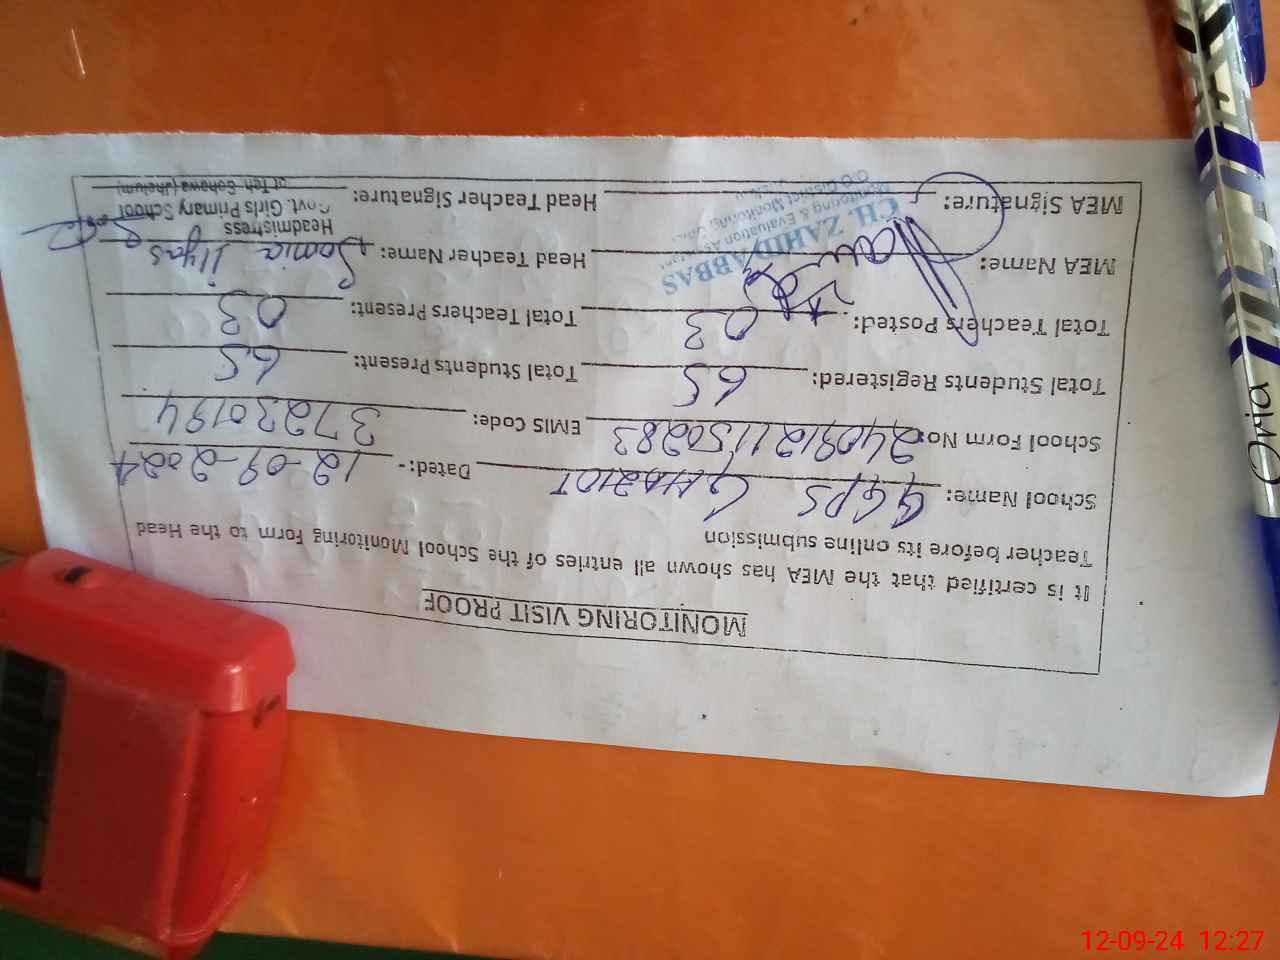 MONITORING VISIT PROOF
It is certified that the MEA has shown all entries of the School Monitoring Form to the Head
Teacher before its online submission
School Name: GGPS GHAZIOT Dated:- 12-09-2024
School Form No: 2409121150283 EMIS Code: 37230194
Total Students Registered: 65 Total Students Present: 65
Total Teachers Posted: 03 Total Teachers Present: 03
MEA Name: Head Teacher Name: Somia Ilyas
CH. ZAHID ABBAS
Monitoring & Evaluation
MEA Signature: Head Teacher Signature:
Headmistress
Govt. Girls Primary School
Teh. Sohawa (Jhelum)
Oria
12-09-24 12:27